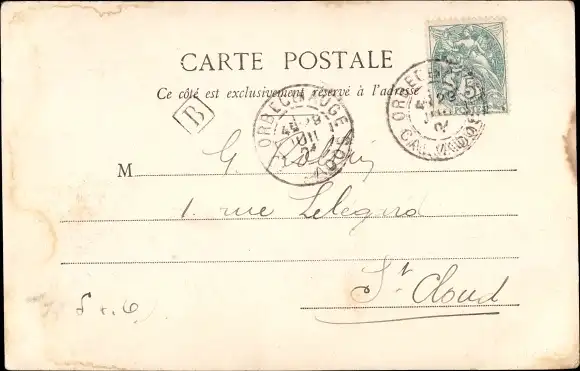 CARTE POSTALE
Ce côté est exclusivement réservé à l'adresse
B
ORBEC EN AUGE
28
JUIL
04
CALVADOS
5
M G.
1. rue Lelégard
St Cloud